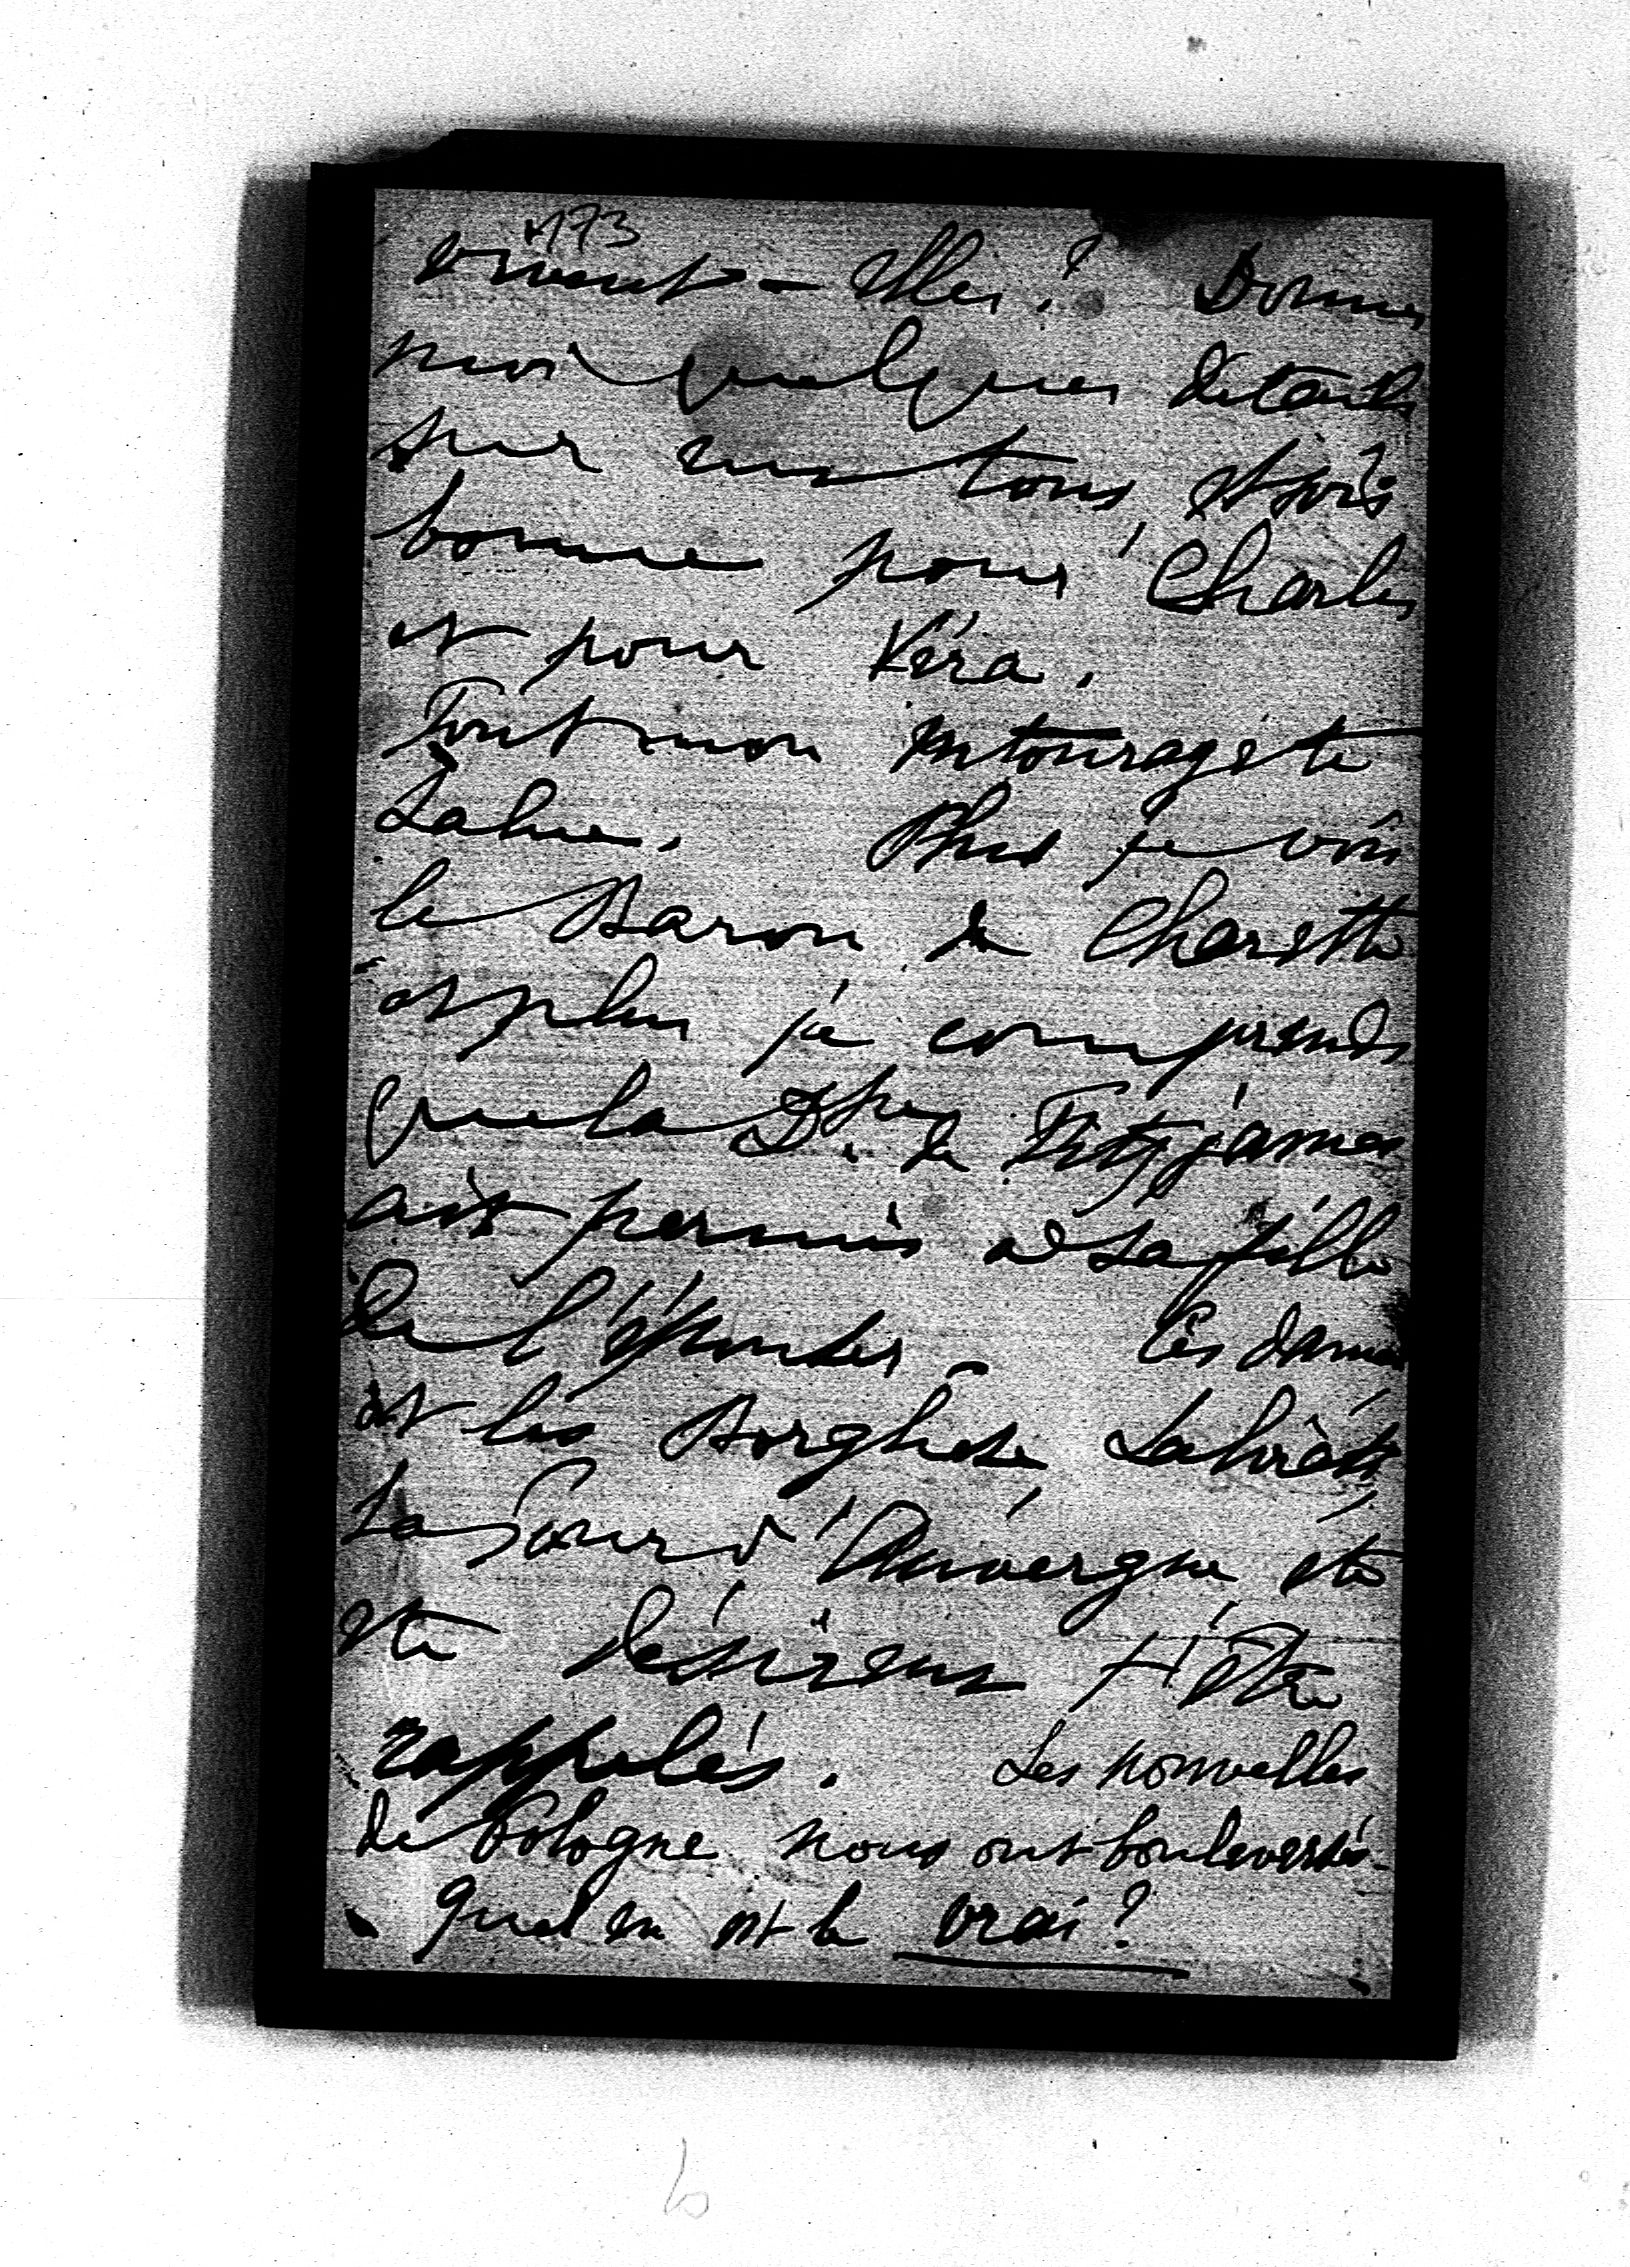 v173
vivent-elles? Donnes
moi quelques détails
sur eux tous, et sois
bonne pour Charles
et pour Véra.
Tout mon entourage te
salue. Plus je vois
le Baron de Charette
et plus je comprends
que la Dsse de Fitzjames
ait permis à sa fille
de l'épouser. Ces dames
et les Borghese
La Tour d'Auvergne etc
etc désireux t'être
rappelés. Les nouvelles
de Pologne nous ont boulversés.
Quel en est le vrai?